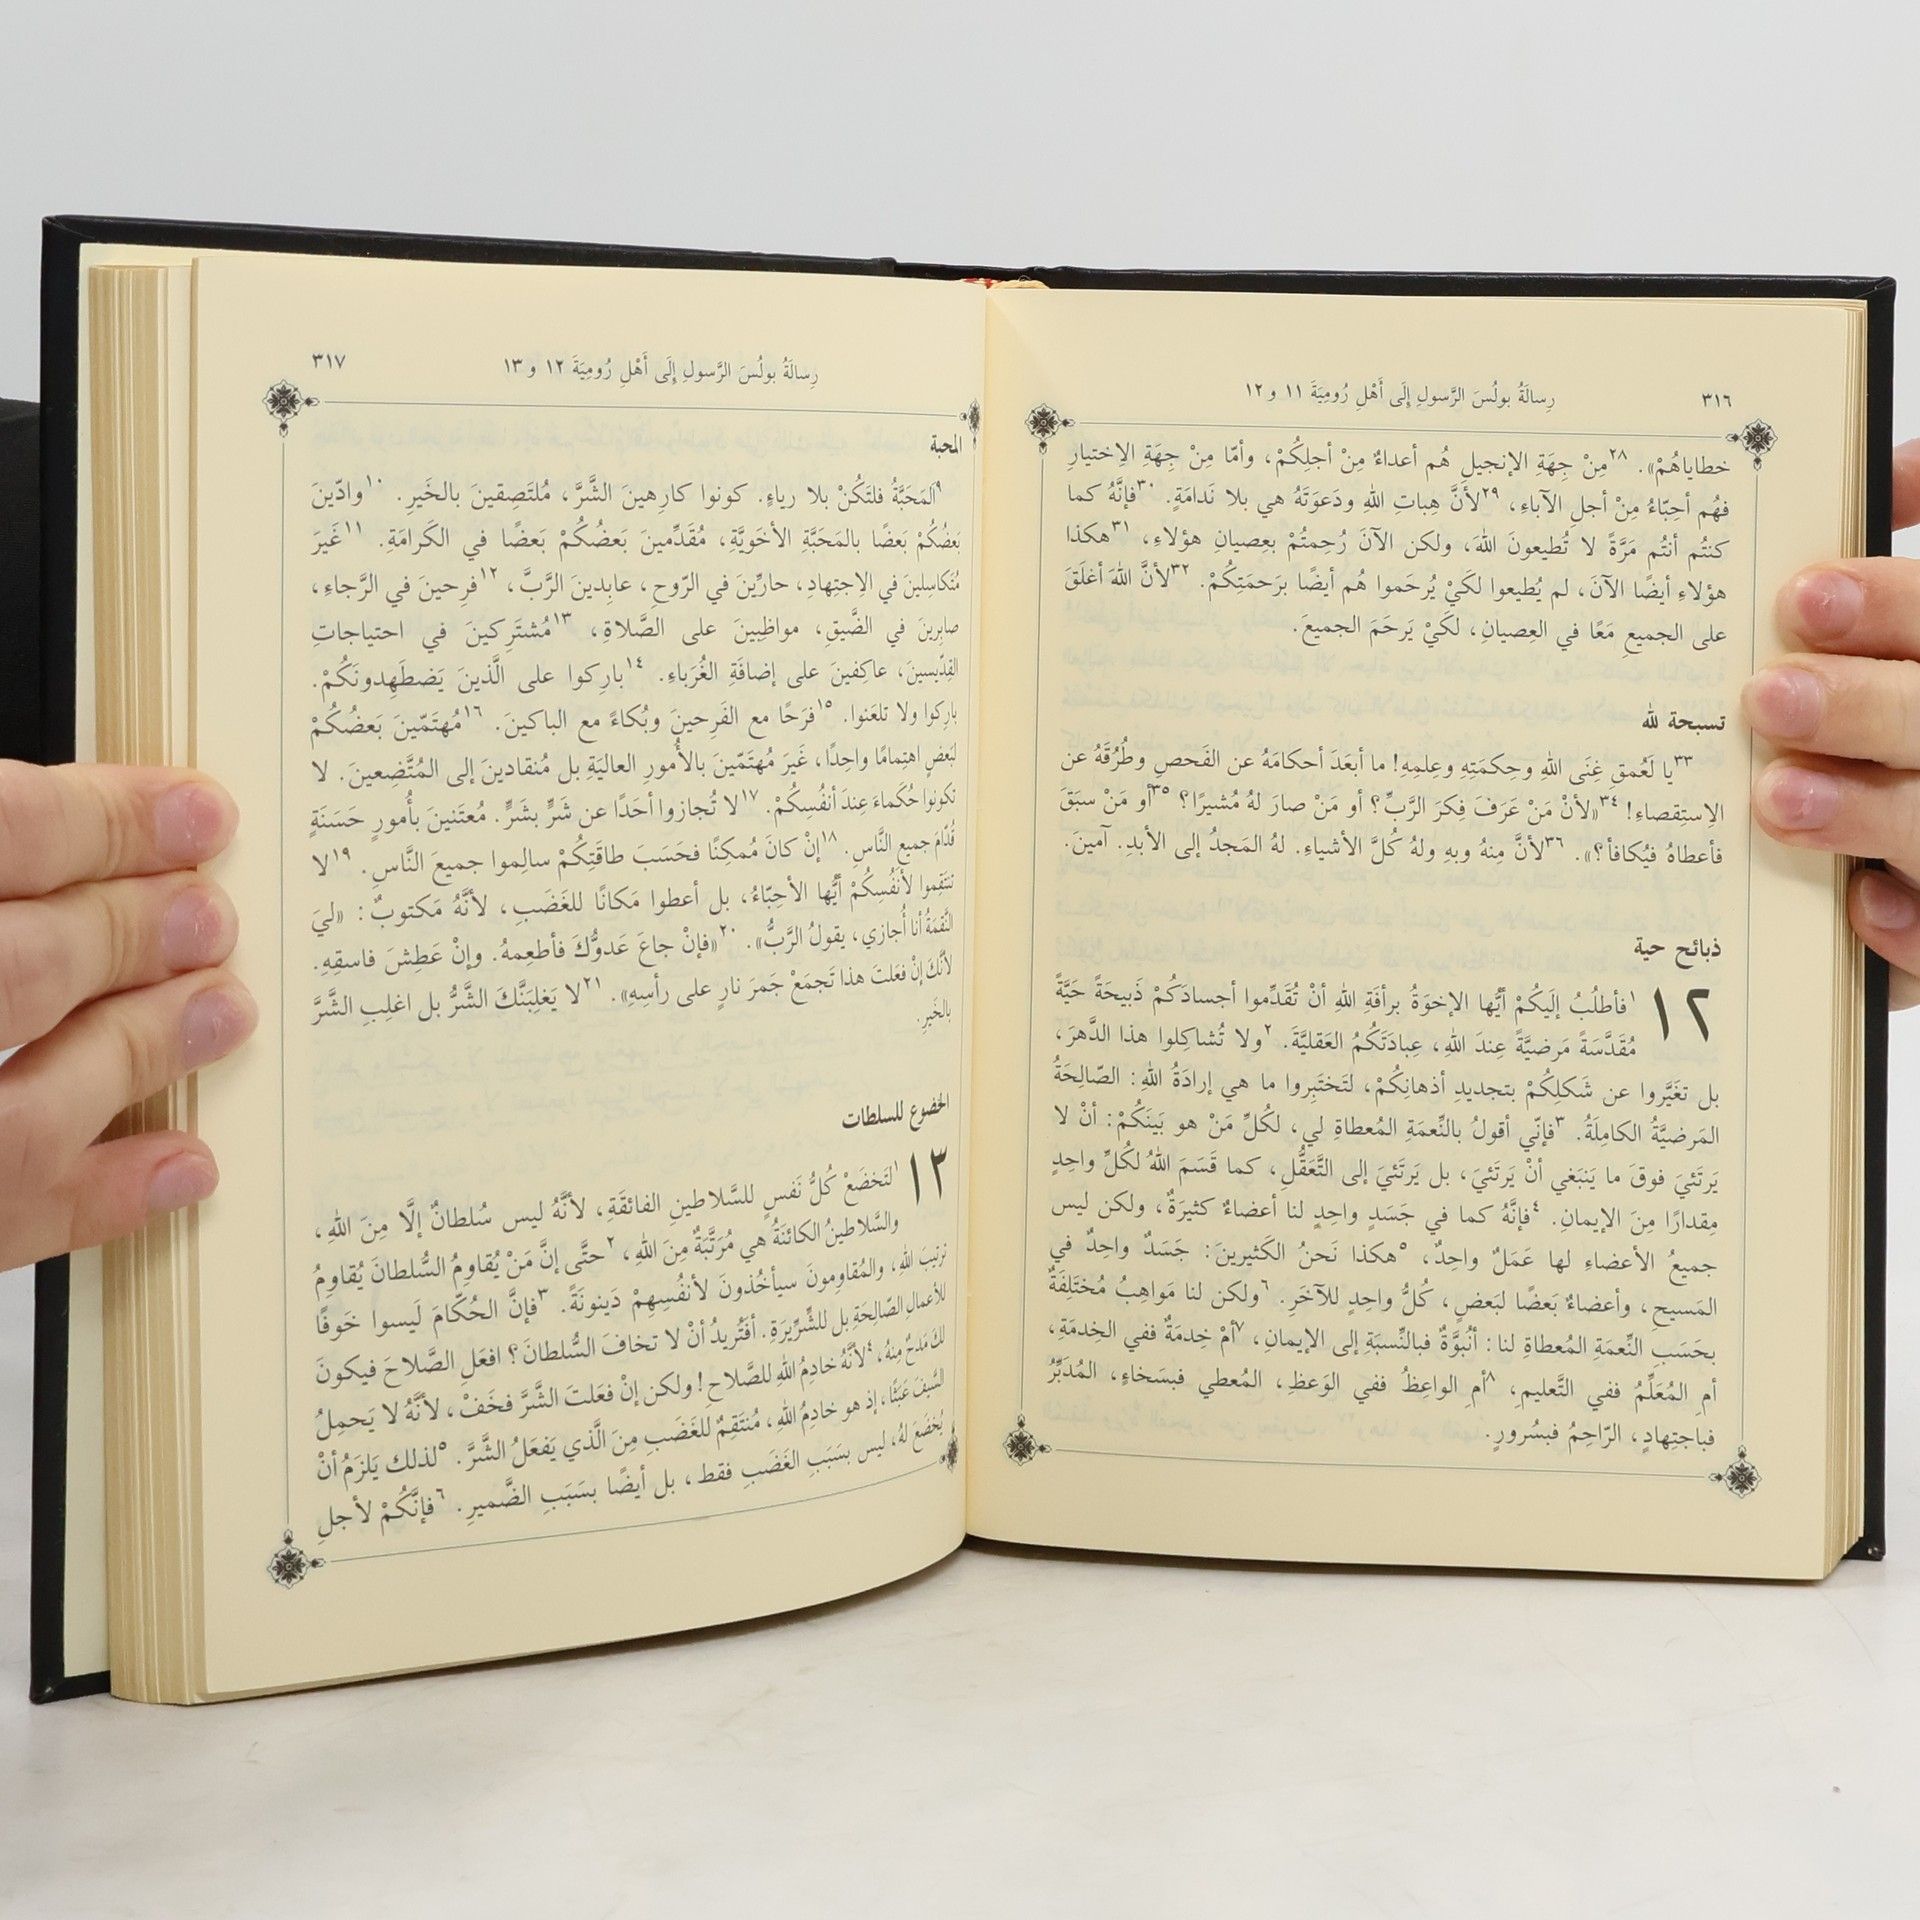 ٣١٦
رِسالَةُ بولُسَ الرَّسولِ إِلَى أَهْلِ رُومِيَةَ ١١ و ١٢
خطاياهُمْ». ٢٨مِنْ جِهَةِ الإنجيلِ هُم أعداءٌ مِنْ أجلِكُمْ، وأمّا مِنْ جِهَةِ الاِختيارِ
فهُم أحِبّاءُ مِنْ أجلِ الآباءِ، ٢٩لأنَّ هِباتِ اللهِ ودَعوَتَهُ هي بلا نَدامَةٍ. ٣٠فإنَّهُ كما
كنتُم أنتُم مَرَّةً لا تُطيعونَ اللهَ، ولكن الآنَ رُحِمتُمْ بعِصيانِ هؤلاءِ، ٣١هكذا
هؤلاءِ أيضًا الآنَ، لم يُطيعوا لكَيْ يُرحَموا هُم أيضًا برَحمَتِكُمْ. ٣٢لأنَّ اللهَ أغلَقَ
على الجميعِ مَعًا في العِصيانِ، لكَيْ يَرحَمَ الجميعَ.
تسبحة لله
٣٣يا لَعُمقِ غِنَى اللهِ وحِكمَتِهِ وعِلمِهِ! ما أبعَدَ أحكامَهُ عن الفَحصِ وطُرُقَهُ عن
الاِستِقصاءِ! ٣٤«لأنْ مَنْ عَرَفَ فِكرَ الرَّبِّ؟ أو مَنْ صارَ لهُ مُشيرًا؟ ٣٥أو مَنْ سبَقَ
فأعطاهُ فيُكافأ؟». ٣٦لأنَّ مِنهُ وبهِ ولهُ كُلَّ الأشياءِ. لهُ المَجدُ إلى الأبدِ. آمينَ.
ذبائح حية
١٢ ١فأطلُبُ إلَيكُمْ أيُّها الإخوَةُ برأفَةِ اللهِ أنْ تُقَدِّموا أجسادَكُمْ ذَبيحَةً حَيَّةً
مُقَدَّسَةً مَرضيَّةً عِندَ اللهِ، عِبادَتَكُمُ العَقليَّةَ. ٢ولا تُشاكِلوا هذا الدَّهرَ،
بل تغَيَّروا عن شَكلِكُمْ بتجديدِ أذهانِكُمْ، لتَختَبِروا ما هي إرادَةُ اللهِ: الصّالِحَةُ
المَرضيَّةُ الكامِلَةُ. ٣فإنّي أقولُ بالنِّعمَةِ المُعطاةِ لي، لكُلِّ مَنْ هو بَينَكُمْ: أنْ لا
يَرتَئيَ فوقَ ما يَنبَغي أنْ يَرتَئيَ، بل يَرتَئيَ إلى التَّعَقُّلِ، كما قَسَمَ اللهُ لكُلِّ واحِدٍ
مِقدارًا مِنَ الإيمانِ. ٤فإنَّهُ كما في جَسَدٍ واحِدٍ لنا أعضاءٌ كثيرَةٌ، ولكن ليس
جميعُ الأعضاءِ لها عَمَلٌ واحِدٌ، ٥هكذا نَحنُ الكَثيرينَ: جَسَدٌ واحِدٌ في
المَسيحِ، وأعضاءٌ بَعضًا لبَعضٍ، كُلُّ واحِدٍ للآخَرِ. ٦ولكن لنا مَواهِبُ مُختَلِفَةٌ
بحَسَبِ النِّعمَةِ المُعطاةِ لنا: أنُبوَّةٌ فبالنِّسبَةِ إلى الإيمانِ، ٧أمْ خِدمَةٌ ففي الخِدمَةِ،
أمِ المُعَلِّمُ ففي التَّعليمِ، ٨أمِ الواعِظُ ففي الوَعظِ، المُعطي فبسَخاءٍ، المُدَبِّرُ
فباجتِهادٍ، الرّاحِمُ فبسُرورٍ.
رِسالَةُ بولُسَ الرَّسولِ إِلَى أَهْلِ رُومِيَةَ ١٢ و ١٣
٣١٧
المحبة
٩اَلمَحَبَّةُ فلتَكُنْ بلا رياءٍ. كونوا كارِهينَ الشَّرَّ، مُلتَصِقينَ بالخَيرِ. ١٠وادّينَ
بَعضُكُمْ بَعضًا بالمَحَبَّةِ الأخَويَّةِ، مُقَدِّمينَ بَعضُكُمْ بَعضًا في الكَرامَةِ. ١١غَيرَ
مُتَكاسِلينَ في الاِجتِهادِ، حارّينَ في الرّوحِ، عابِدينَ الرَّبَّ، ١٢فرِحينَ في الرَّجاءِ،
صابِرينَ في الضَّيقِ، مواظِبينَ على الصَّلاةِ، ١٣مُشتَرِكينَ في احتياجاتِ
القِدّيسينَ، عاكِفينَ على إضافَةِ الغُرَباءِ. ١٤بارِكوا على الَّذينَ يَضطَهِدونَكُمْ.
بارِكوا ولا تلعَنوا. ١٥فرَحًا مع الفَرِحينَ وبُكاءً مع الباكينَ. ١٦مُهتَمّينَ بَعضُكُمْ
لبَعضٍ اهتِمامًا واحِدًا، غَيرَ مُهتَمّينَ بالأُمورِ العاليَةِ بل مُنقادينَ إلى المُتَّضِعينَ. لا
تكونوا حُكَماءَ عِندَ أنفُسِكُمْ. ١٧لا تُجازوا أحَدًا عن شَرٍّ بشَرٍّ. مُعتَنينَ بأُمورٍ حَسَنَةٍ
قُدّامَ جميعِ النَّاسِ. ١٨إنْ كانَ مُمكِنًا فحَسَبَ طاقَتِكُمْ سالِموا جميعَ النَّاسِ. ١٩لا
تنتَقِموا لأنفُسِكُمْ أيُّها الأحِبّاءُ، بل أعطوا مَكانًا للغَضَبِ، لأنَّهُ مَكتوبٌ: «ليَ
النَّقمَةُ أنا أُجازي، يقولُ الرَّبُّ». ٢٠«فإنْ جاعَ عَدوُّكَ فأطعِمهُ. وإنْ عَطِشَ فاسقِهِ.
لأنَّكَ إنْ فعَلتَ هذا تَجمَعْ جَمرَ نارٍ على رأسِهِ». ٢١لا يَغلِبَنَّكَ الشَّرُّ بل اغلِبِ الشَّرَّ
بالخَيرِ.
الخضوع للسلطات
١٣ ١لتَخضَعْ كُلُّ نَفسٍ للسَّلاطينِ الفائقَةِ، لأنَّهُ ليس سُلطانٌ إلَّا مِنَ اللهِ،
والسَّلاطينُ الكائنَةُ هي مُرَتَّبَةٌ مِنَ اللهِ، ٢حتَّى إنَّ مَنْ يُقاوِمُ السُّلطانَ يُقاوِمُ
ترتيبَ اللهِ، والمُقاوِمونَ سيأخُذونَ لأنفُسِهِمْ دَينونَةً. ٣فإنَّ الحُكّامَ لَيسوا خَوفًا
للأعمالِ الصّالِحَةِ بل للشِّرّيرَةِ. أفَتُريدُ أنْ لا تخافَ السُّلطانَ؟ افعَلِ الصَّلاحَ فيكونَ
لكَ مَدحٌ مِنهُ، ٤لأنَّهُ خادِمُ اللهِ للصَّلاحِ! ولكن إنْ فعَلتَ الشَّرَّ فخَفْ، لأنَّهُ لا يَحمِلُ
السَّيفَ عَبَثًا، إذ هو خادِمُ اللهِ، مُنتَقِمٌ للغَضَبِ مِنَ الَّذي يَفعَلُ الشَّرَّ. ٥لذلك يَلزَمُ أنْ
يُخضَعَ لهُ، ليس بسَبَبِ الغَضَبِ فقط، بل أيضًا بسَبَبِ الضَّميرِ. ٦فإنَّكُمْ لأجلِ